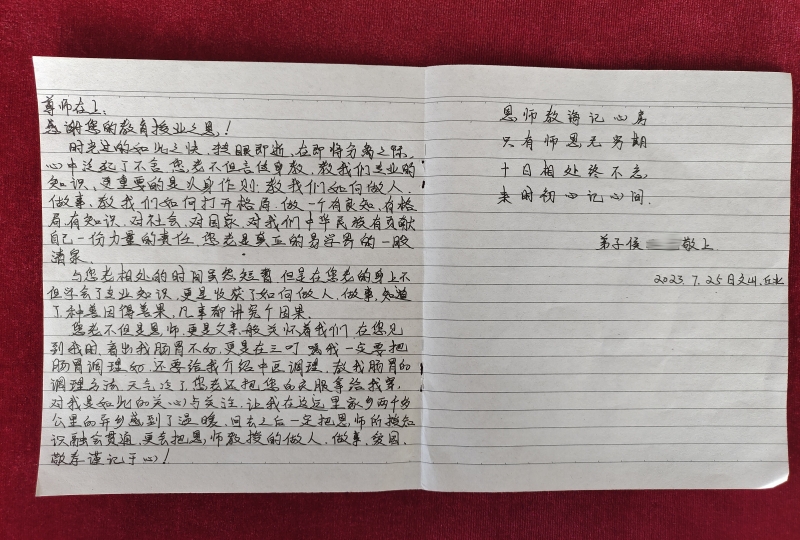 尊师在上:
感谢您的教育授业之恩!
时光过的如此之快,转眼即逝,在即将分离之际,
心中泛起了不舍,您老不但言传身教,教我们专业的
知识,更重要的是以身作则,教我们如何做人,
做事,教我们如何打开格局,做一个有良知,有格
局,有知识,对社会,对国家,对我们中华民族有贡献
自己一份力量的责任,您老是真正的易学界的一股
清泉.
与您老相处的时间虽然短暂,但是在您老的身上不
但学会了专业知识,更是收获了如何做人,做事,知道
了种善因得善果,凡事都讲究个因果.
您老不但是恩师,更是父亲般关怀着我们,在您见
到我时,看出我肠胃不好,更是在三叮嘱我一定要把
肠胃调理好,还要给我介绍中医调理,教我肠胃的
调理方法,天气冷了您老还把您的衣服拿给我穿,
对我是如此的关心与关注,让我在这远里家乡两千多
公里的异乡感到了温暖,回去之后一定把恩师所授知
识融会贯通,更会把恩师教授的做人,做事,爱国,
敬孝谨记于心!
恩师教海记心房
只有师恩无穷期
十日相处终不忘
来时初心记心间.
弟子侯 敬上
2023.7.25日文山,丘北